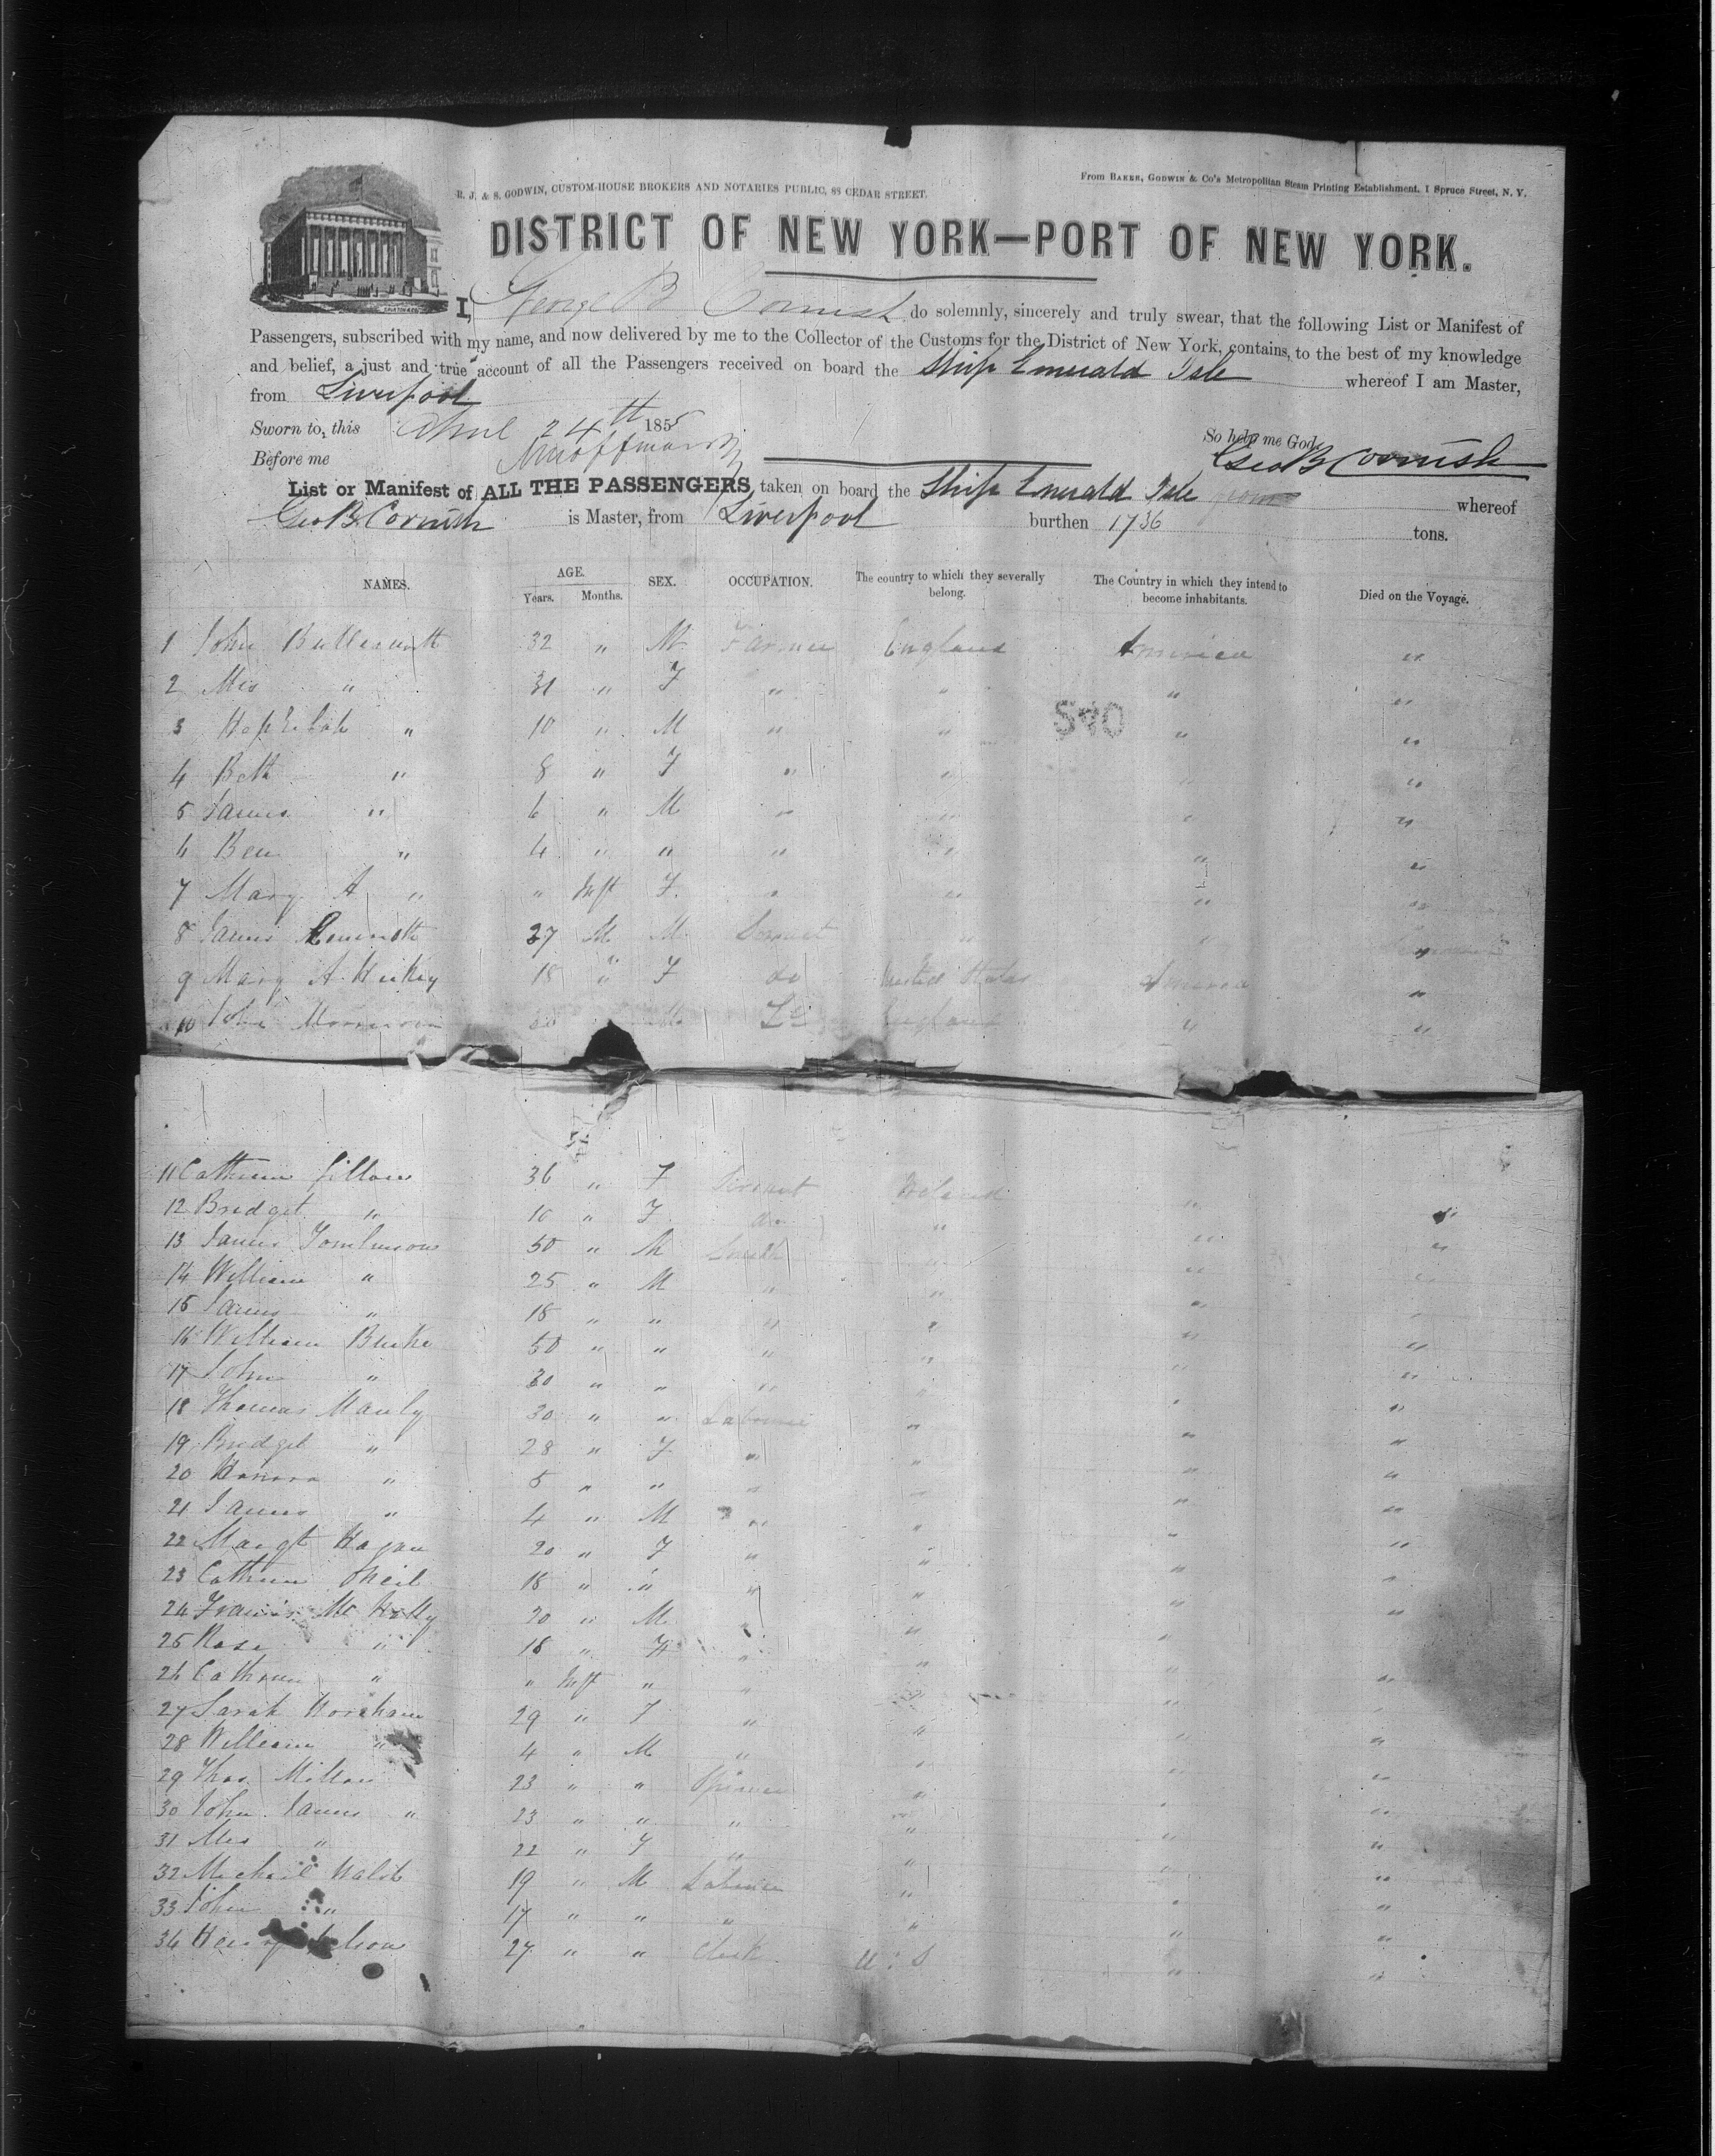 R. J. & S. GODWIN, CUSTOM-HOUSE BROKERS AND NOTARIES PUBLIC, 88 CEDAR STREET.
From BAKER, GODWIN & Co's Metropolitan Steam Printing Establishment, 1 Spruce Street, N. Y.
DISTRICT OF NEW YORK—PORT OF NEW YORK.
I, George B Cornish do solemnly, sincerely and truly swear, that the following List or Manifest of
Passengers, subscribed with my name, and now delivered by me to the Collector of the Customs for the District of New York, contains, to the best of my knowledge
and belief, a just and true account of all the Passengers received on board the Ship Emerald Isle whereof I am Master,
from Liverpool
Sworn to, this April 24th 1855 So help me God,
Before me Geo B Cornish
List or Manifest of ALL THE PASSENGERS taken on board the Ship Emerald Isle from whereof
Geo B Cornish is Master, from Liverpool burthen 1736 tons.
NAMES. AGE. Years. Months. SEX. OCCUPATION. The country to which they severally belong. The Country in which they intend to become inhabitants. Died on the Voyage.
1 John Butterworth 32 " M Farmer England America "
2 Mrs " 31 " F " " " "
590
3 Hephzibah " 10 " M " " " "
4 Beth " 8 " F " " " "
5 James " 6 " M " " " "
6 Ben " 4 " " " " " "
7 Mary A " " Inft F " " " "
8 James 27 M M Servant " " "
9 Mary A Hickey 18 " F do United States America "
10 John Morrison 30 M England " "
11 Catherine 36 " F Servant Ireland "
12 Bridget " 10 " F do " " "
13 James Tomlinson 50 " M Smith " " "
14 William " 25 " M " " " "
15 James " 18 " " " " " "
16 William Burke 50 " " " " " "
17 John " 30 " " " " " "
18 Thomas Manly 30 " " Labourer " " "
19 Bridget " 28 " F " " " "
20 Honora " 5 " " " " " "
21 James " 4 " M " " " "
22 Margt Hagan 20 " F " " " "
23 Catherine ONeil 18 " " " " " "
24 Francis Mc 20 " M " " " "
25 Rose " 18 " F " " "
26 Catherine " " Inft " " " " "
27 Sarah 29 " F " " " "
28 William " 4 " M " " " "
29 Thos 23 " " Spinner " " "
30 John James " 23 " " " " " "
31 Mrs " 22 " F " " " "
32 Michael Walsh 19 " M Labourer " " "
33 John " 17 " " " " " "
34 Henry 27 " " Clerk U S " "